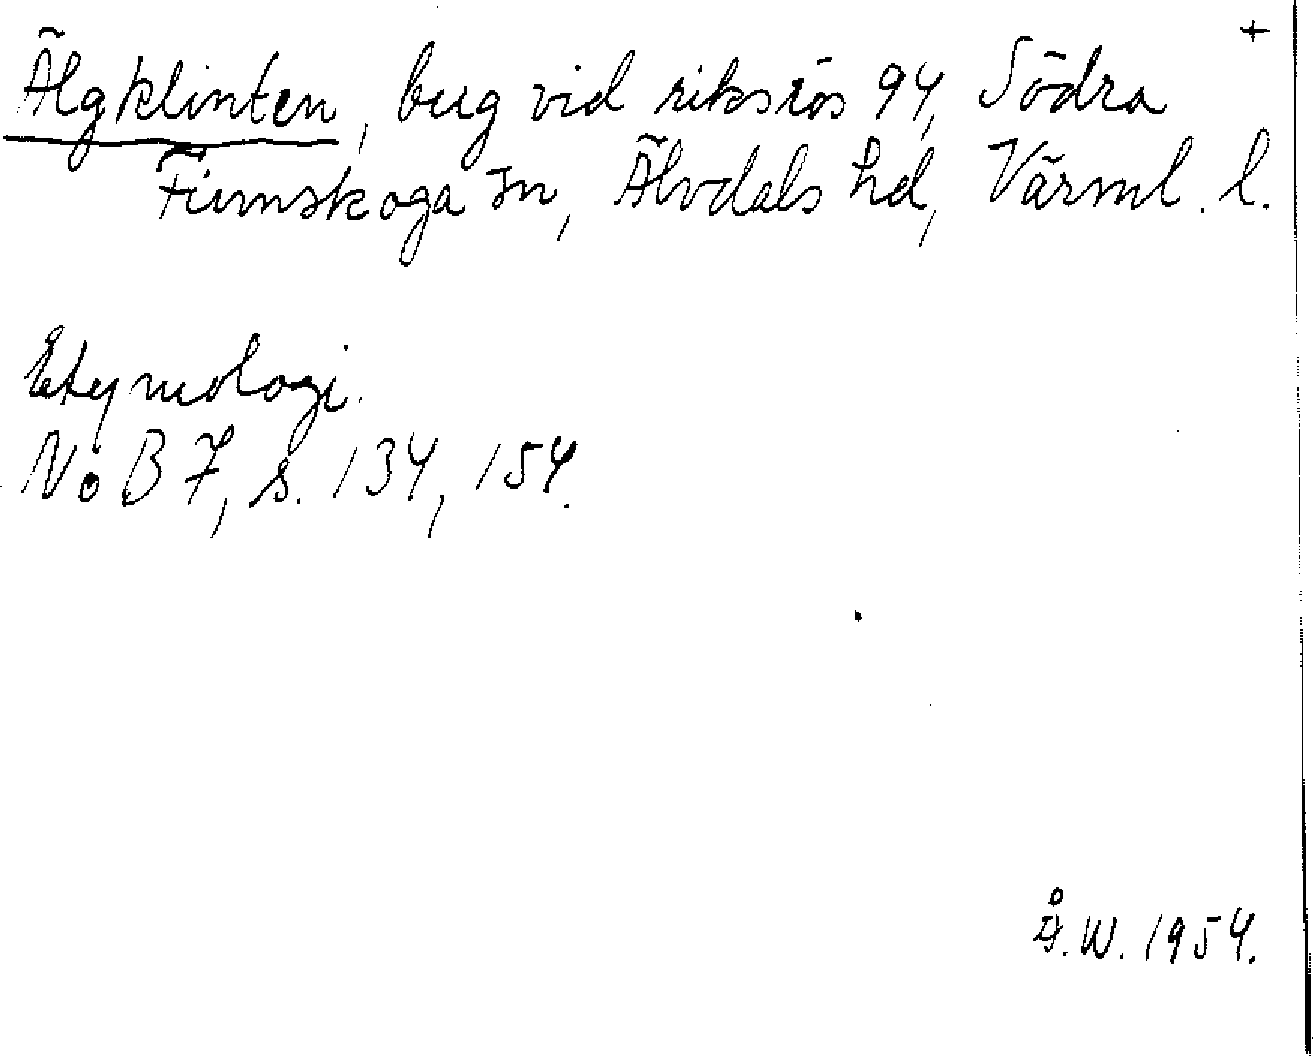 +
Älgklinten, berg vid riksrös 94, Södra
Finnskoga sn, Älvdals hd, Värml. l.
Etymologi.
NoB 7, s. 134, 154.
Å.W. 1954.